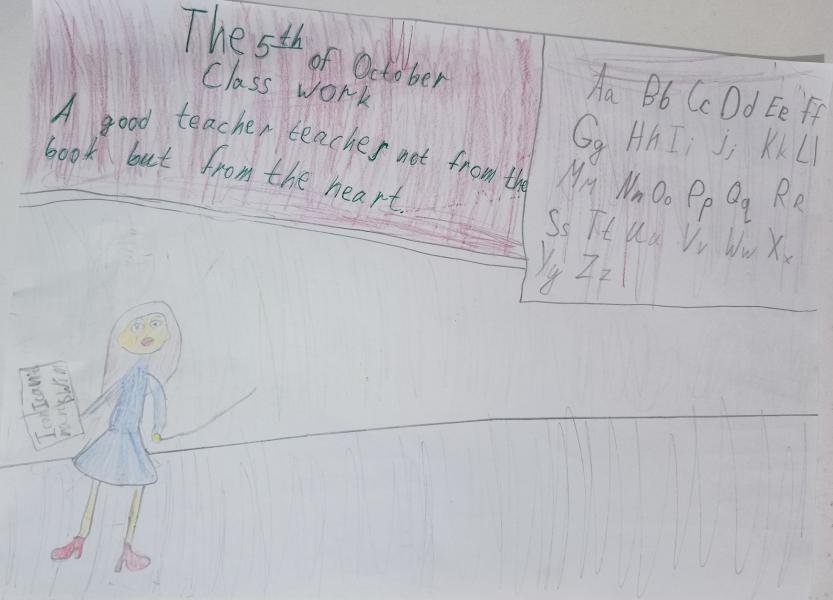 The 5th of October
Class work
A good teacher teaches not from the
book but from the heart.
Aa Bb Cc Dd Ee Ff
Gg Hh Ii Jj Kk Ll
Mm Nn Oo Pp Qq Rr
Ss Tt Uu Vv Ww Xx
Yy Zz